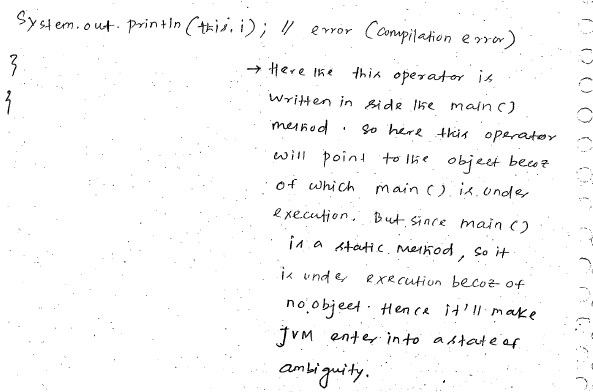 System.out.println(this.i); // error (compilation error)
}
}
→ Here the this operator is
written in side the main()
method. so here this operator
will point to the object becoz
of which main() is under
execution. But since main()
is a static method, so it
is under execution becoz of
no object. Hence it'll make
JVM enter into a state of
ambiguity.